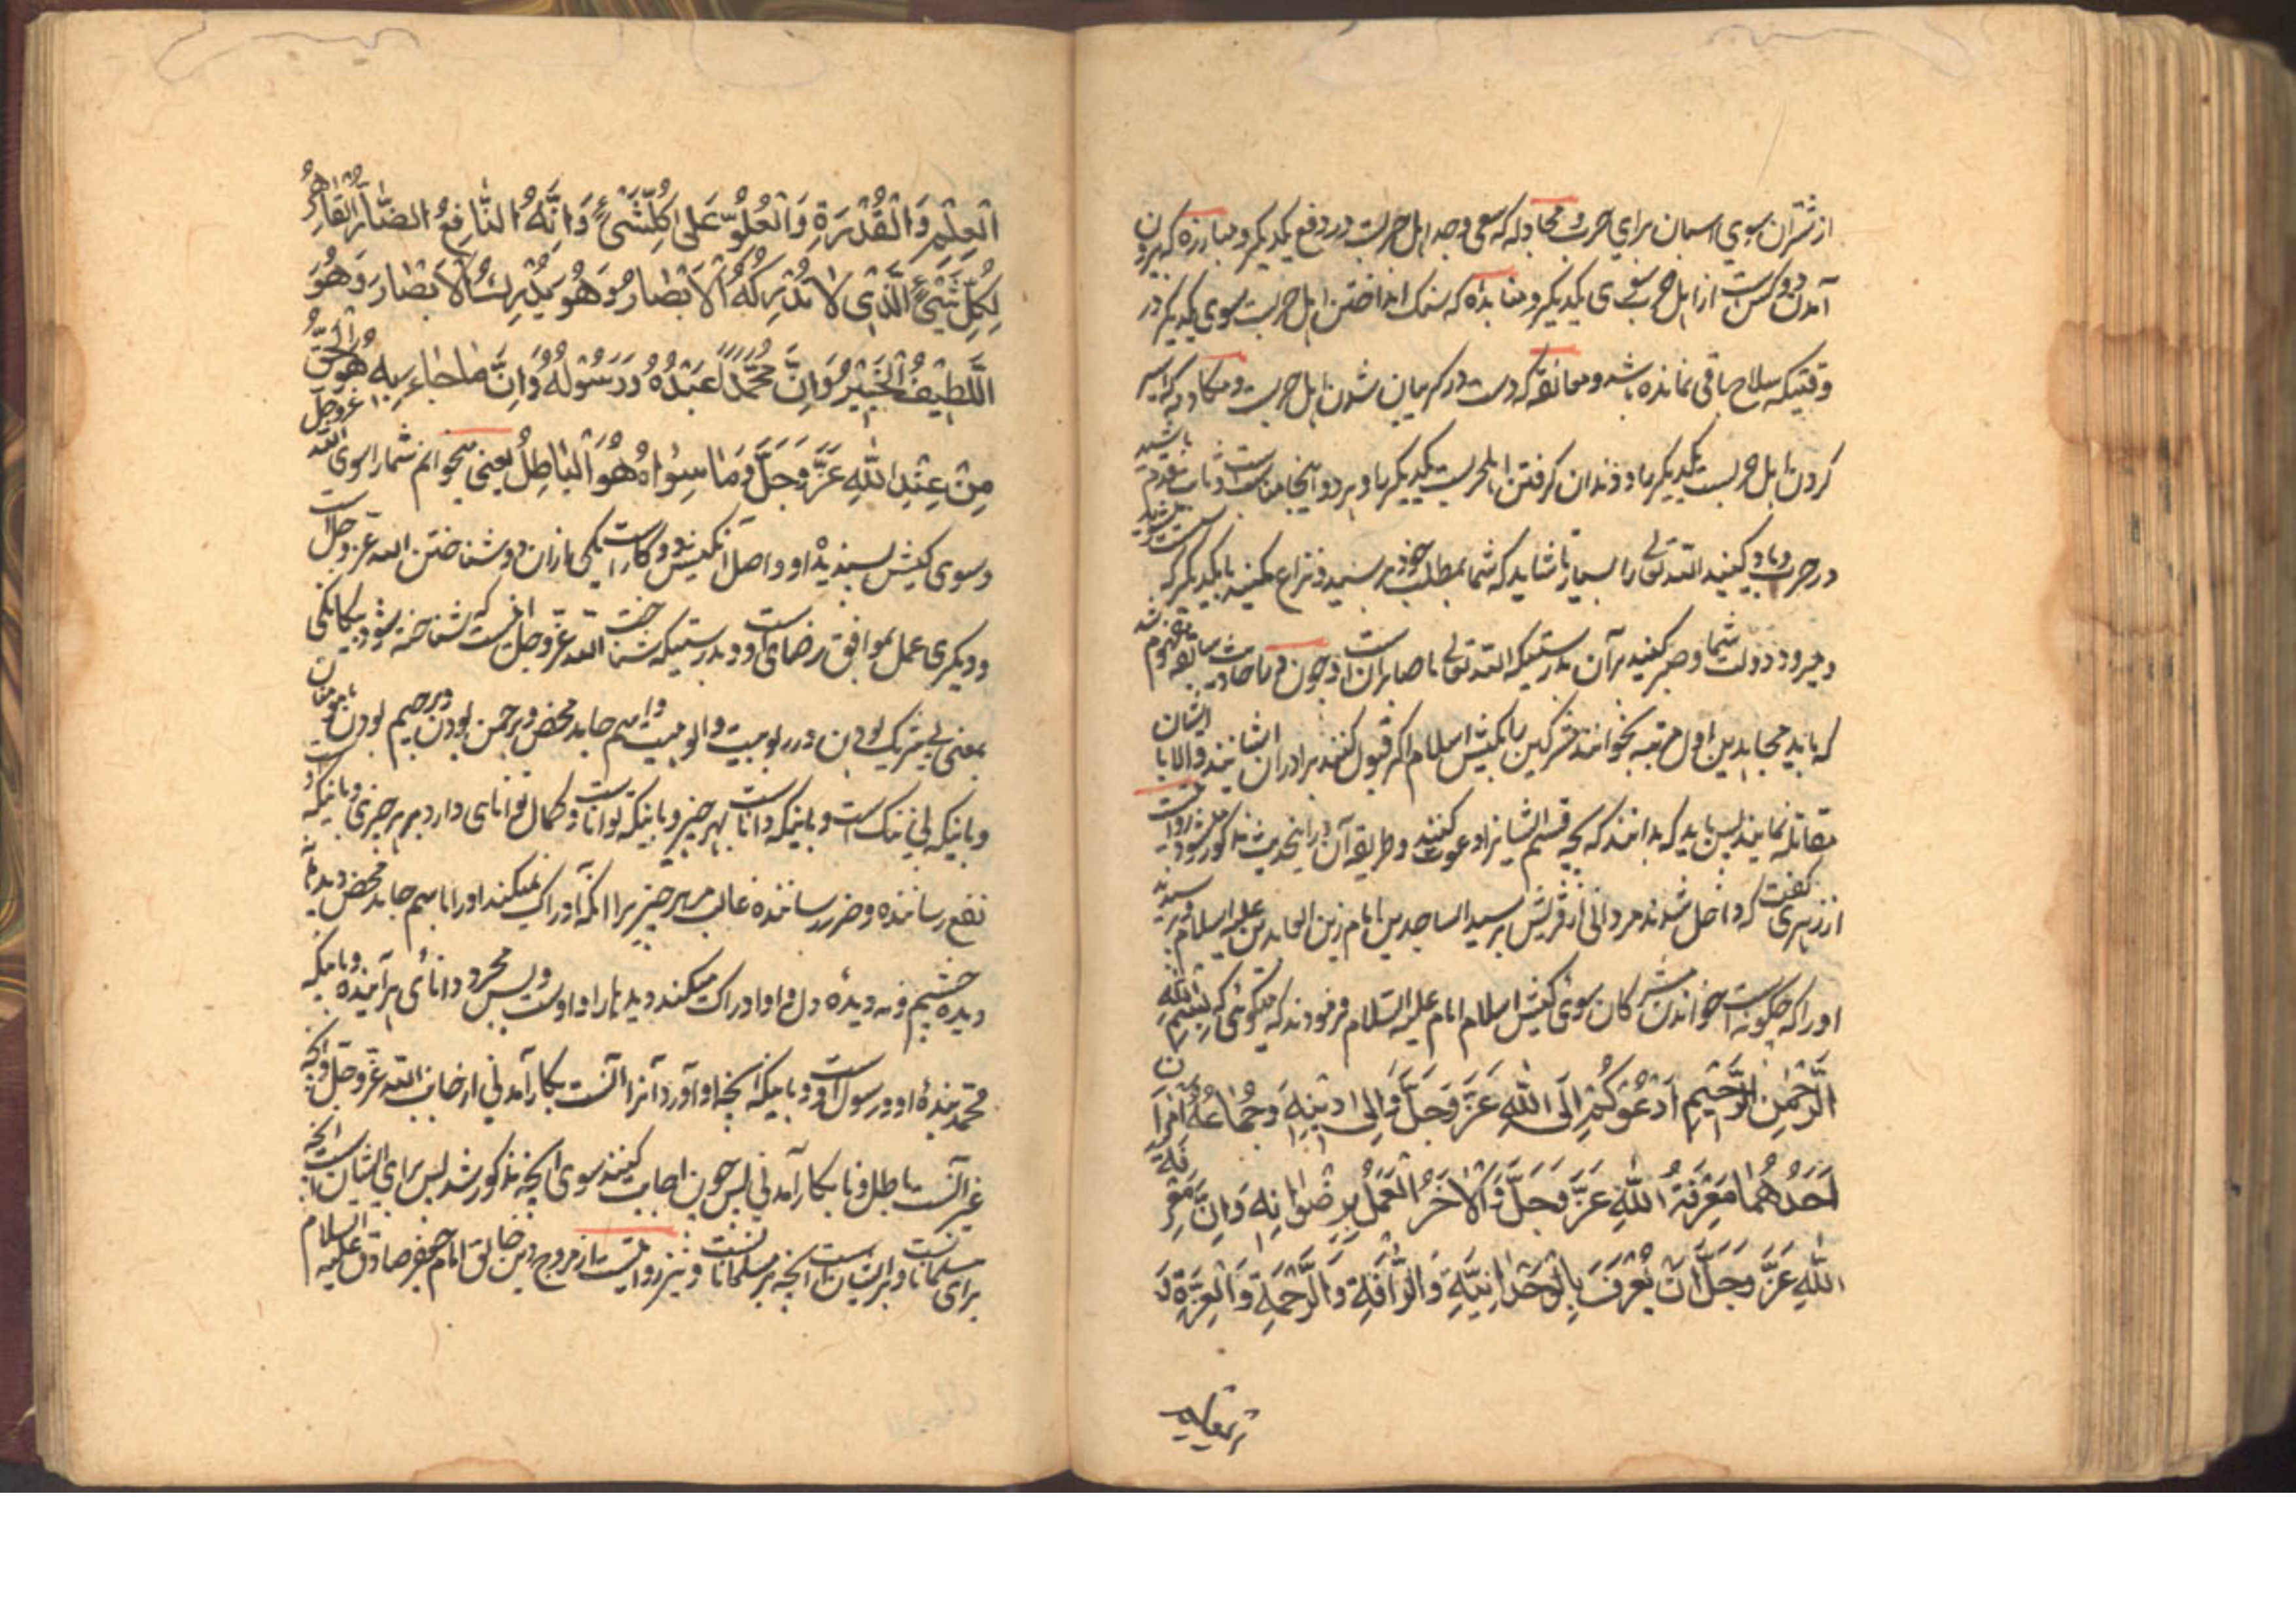 از شتران سوی اسمان برای حرب و مجادله که سعی و جد اهل حربست در دفع یکدیکر و مبارزه که بیرون
آمدن دو کس است از اهل حرب بسوی یکدیکر و منابذه که سنک انداختن اهل حربست سوی یکدیکر در
وقتیکه سلاح باقی نمانده باشد و معانقه که دست در کمر میان شدن اهل حربست و مکادمه که اسیر
کردن اهل حربست یکدیکر را و دندان کرفتن اهل حربست یکدیکر را و هر دو اینجا مناسب است و ثابت قدم باشید
در حرب و یاد کنید الله تعالی را بسیار تا شاید که شما بمطلب خود برسید و نزاع مکنید با یکدیکر که
و میرود دولت شما و صبر کنید بر آن بدرستیکه الله تعالی با صابران است و چون از حادیث سابقه مفهوم شد
که باید مجاهدین اول مرتبه بخوانند مشرکین را بکیش اسلام اکر قبول کنند برادران ایشانند و الا با ایشان
مقاتله نمایند پس باید که بدانند که بچه قسم ایشانرا دعوت کنند و طریقه آن در اینحدیث مذکور میشود روایت
از زهری گفت که داخل شدند مردانی از قریش بر سید الساجدین امام زین العابدین علیه السلام پرسیدند
او را که چکونه است خواندن مشرکان سوی کیش اسلام امام علیه السلام فرمودند که میکوئی که بسم الله
الرَّحْمنِ الرَّحیمِ اَدْعُوکُمْ اِلَی اللّٰهِ عَزَّ وَجَلَّ وَاِلی دینِهِ وَجُماعُهُ اَمْرانِ
اَحَدُهُما مَعْرِفَةُ اللّٰهِ عَزَّ وَجَلَّ وَالاخَرُ الْعَمَلُ بِرِضْوانِهِ وَاِنَّ مَعْرِفَةَ
اللّٰهِ عَزَّ وَجَلَّ اَنْ یُعْرَفَ بِالْوَحْدانِیَّةِ وَالرَّأفَةِ وَالرَّحْمَةِ وَالْعِزَّةِ وَ
الْعِلْمِ وَالْقُدْرَةِ وَالْعُلُوِّ عَلی کُلِّ شَیْءٍ وَاِنَّهُ النّافِعُ الضّارُّ القاهِرُ
لِکُلِّ شَیْءٍ الَّذی لا تُدْرِکُهُ الْاَبْصارُ وَهُوَ یُدْرِكُ الْاَبْصارَ وَهُوَ
اللَّطیفُ الْخَبیرُ وَاَنَّ مُحَمَّداً عَبْدُهُ وَرَسُولُهُ وَاَنَّ ما جاءَ بِهِ هُوَ الْحَقُّ
مِنْ عِنْدِ اللّٰهِ عَزَّ وَجَلَّ وَما سِواهُ هُوَ الْباطِلُ یعنی میخوانم شما را سوی الله عزوجل
و سوی کیش پسندیدۀ او و اصل آن کیش دو کار است یکی از آن دو شناختن الله عز و جل است
و دیکری عمل بموافق رضای اوست و بدرستیکه شناخت الله عز و جل انست که شناخته شود بیکانکی
بمعنی بی شریک بودن در ربوبیت و الوهیت و اسم جامد محض و برحمن بودن و برحیم بودن با مومنان
و باینکه بی ننک است و باینکه داناست بهر چیز و باینکه تواناست و کمال توانای دارد بر هر چیزی و باینکه او
نفع رساننده و ضرر رساننده غالب مر هر چیز را انکه ادراک نمیکند او را باسم جامد محض دیدها نه
دیده چشم و نه دیدۀ دل و او ادراک میکند دیدها را و اوست و بس مجرد دانای برآمنده و باینکه
محمد بندۀ او و رسول اوست و باینکه انچه او آورد آنرا آنست بکار آمدنی از جانب الله عز و جل و انچه
غیر آنست باطل و نا بکار آمدنی پس چون اجابت کنند سوی انچه مذکور شد پس برای ایشان است انچه
برای مسلمانانست و بر ایشان است انچه بر مسلمانانست و نیز روایتست از مروج دین خالق امام جعفر صادق علیه السلام